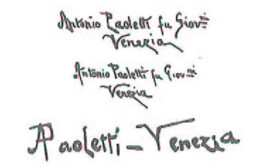 Antonio Paoletti fu Giovni
Venezia
Antonio Paoletti fu Giovni
Venezia
APaoletti - Venezia